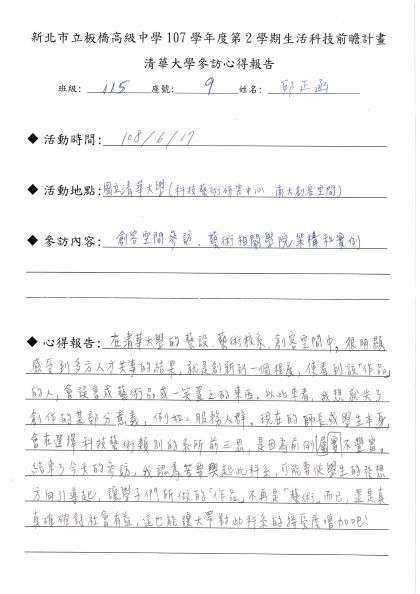 新北市立板橋高級中學 107 學年度第 2 學期生活科技前瞻計畫
清華大學參訪心得報告
班級: 115 座號: 9 姓名: 邱正
◆ 活動時間: 108/6/17
◆ 活動地點: 國立清華大學(科技藝術研究中心 南大創客空間)
◆ 參訪內容: 創客空間參訪、藝術相關學院架構和實例
◆ 心得報告: 在清華大學的藝設、藝術校系、創客空間中,很明顯
感受到多方人才共事的結果,就是創新到一個程度,使看到該「作品」
的人,會誤會成藝術品或一笑置之的東西。以此來看,我想就失了
創作的某部分意義,例如:服務人群。現在的師長或學生本身
會在選擇科技藝術類別的系所前三思,是因為前例不豐富。
結束了今天的參訪,我認為若要興起此科系,可能需從學生的發想
方向引導起,讓學子們所做的「作品」不再是「藝術」而已,還是真
真確確對社會有益,這也能讓大眾對此科系的接受度增加吧!